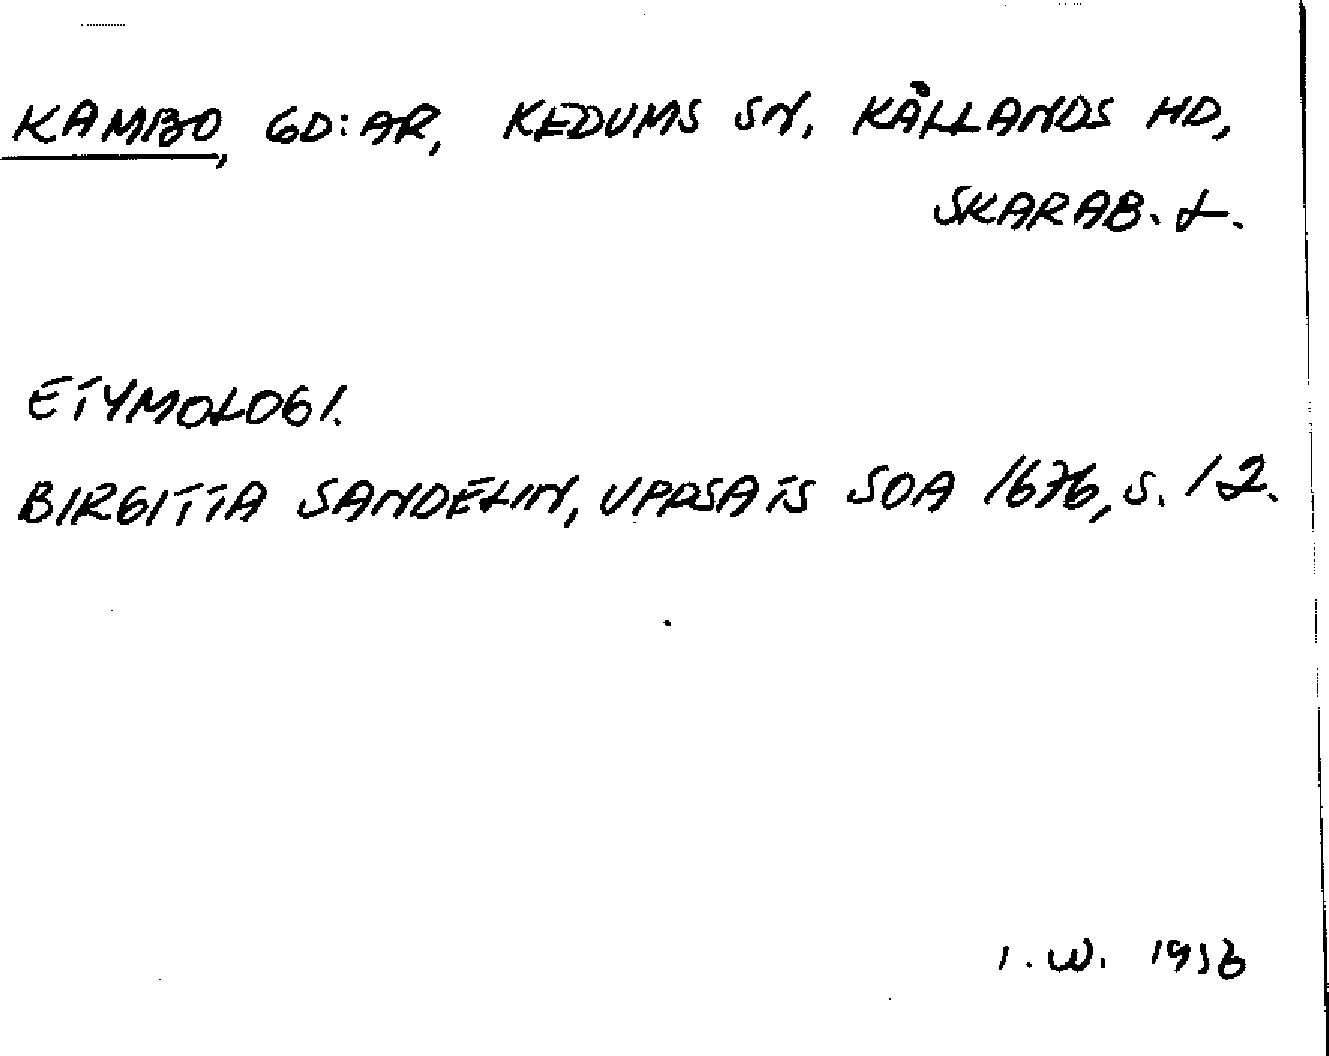 KAMBO, GD:AR, KEDUMS SN, KÅLLANDS HD,
SKARAB. L.
ETYMOLOGI.
BIRGITTA SANDELIN, UPPSATS SOA 1676, S. 12.
I. W.